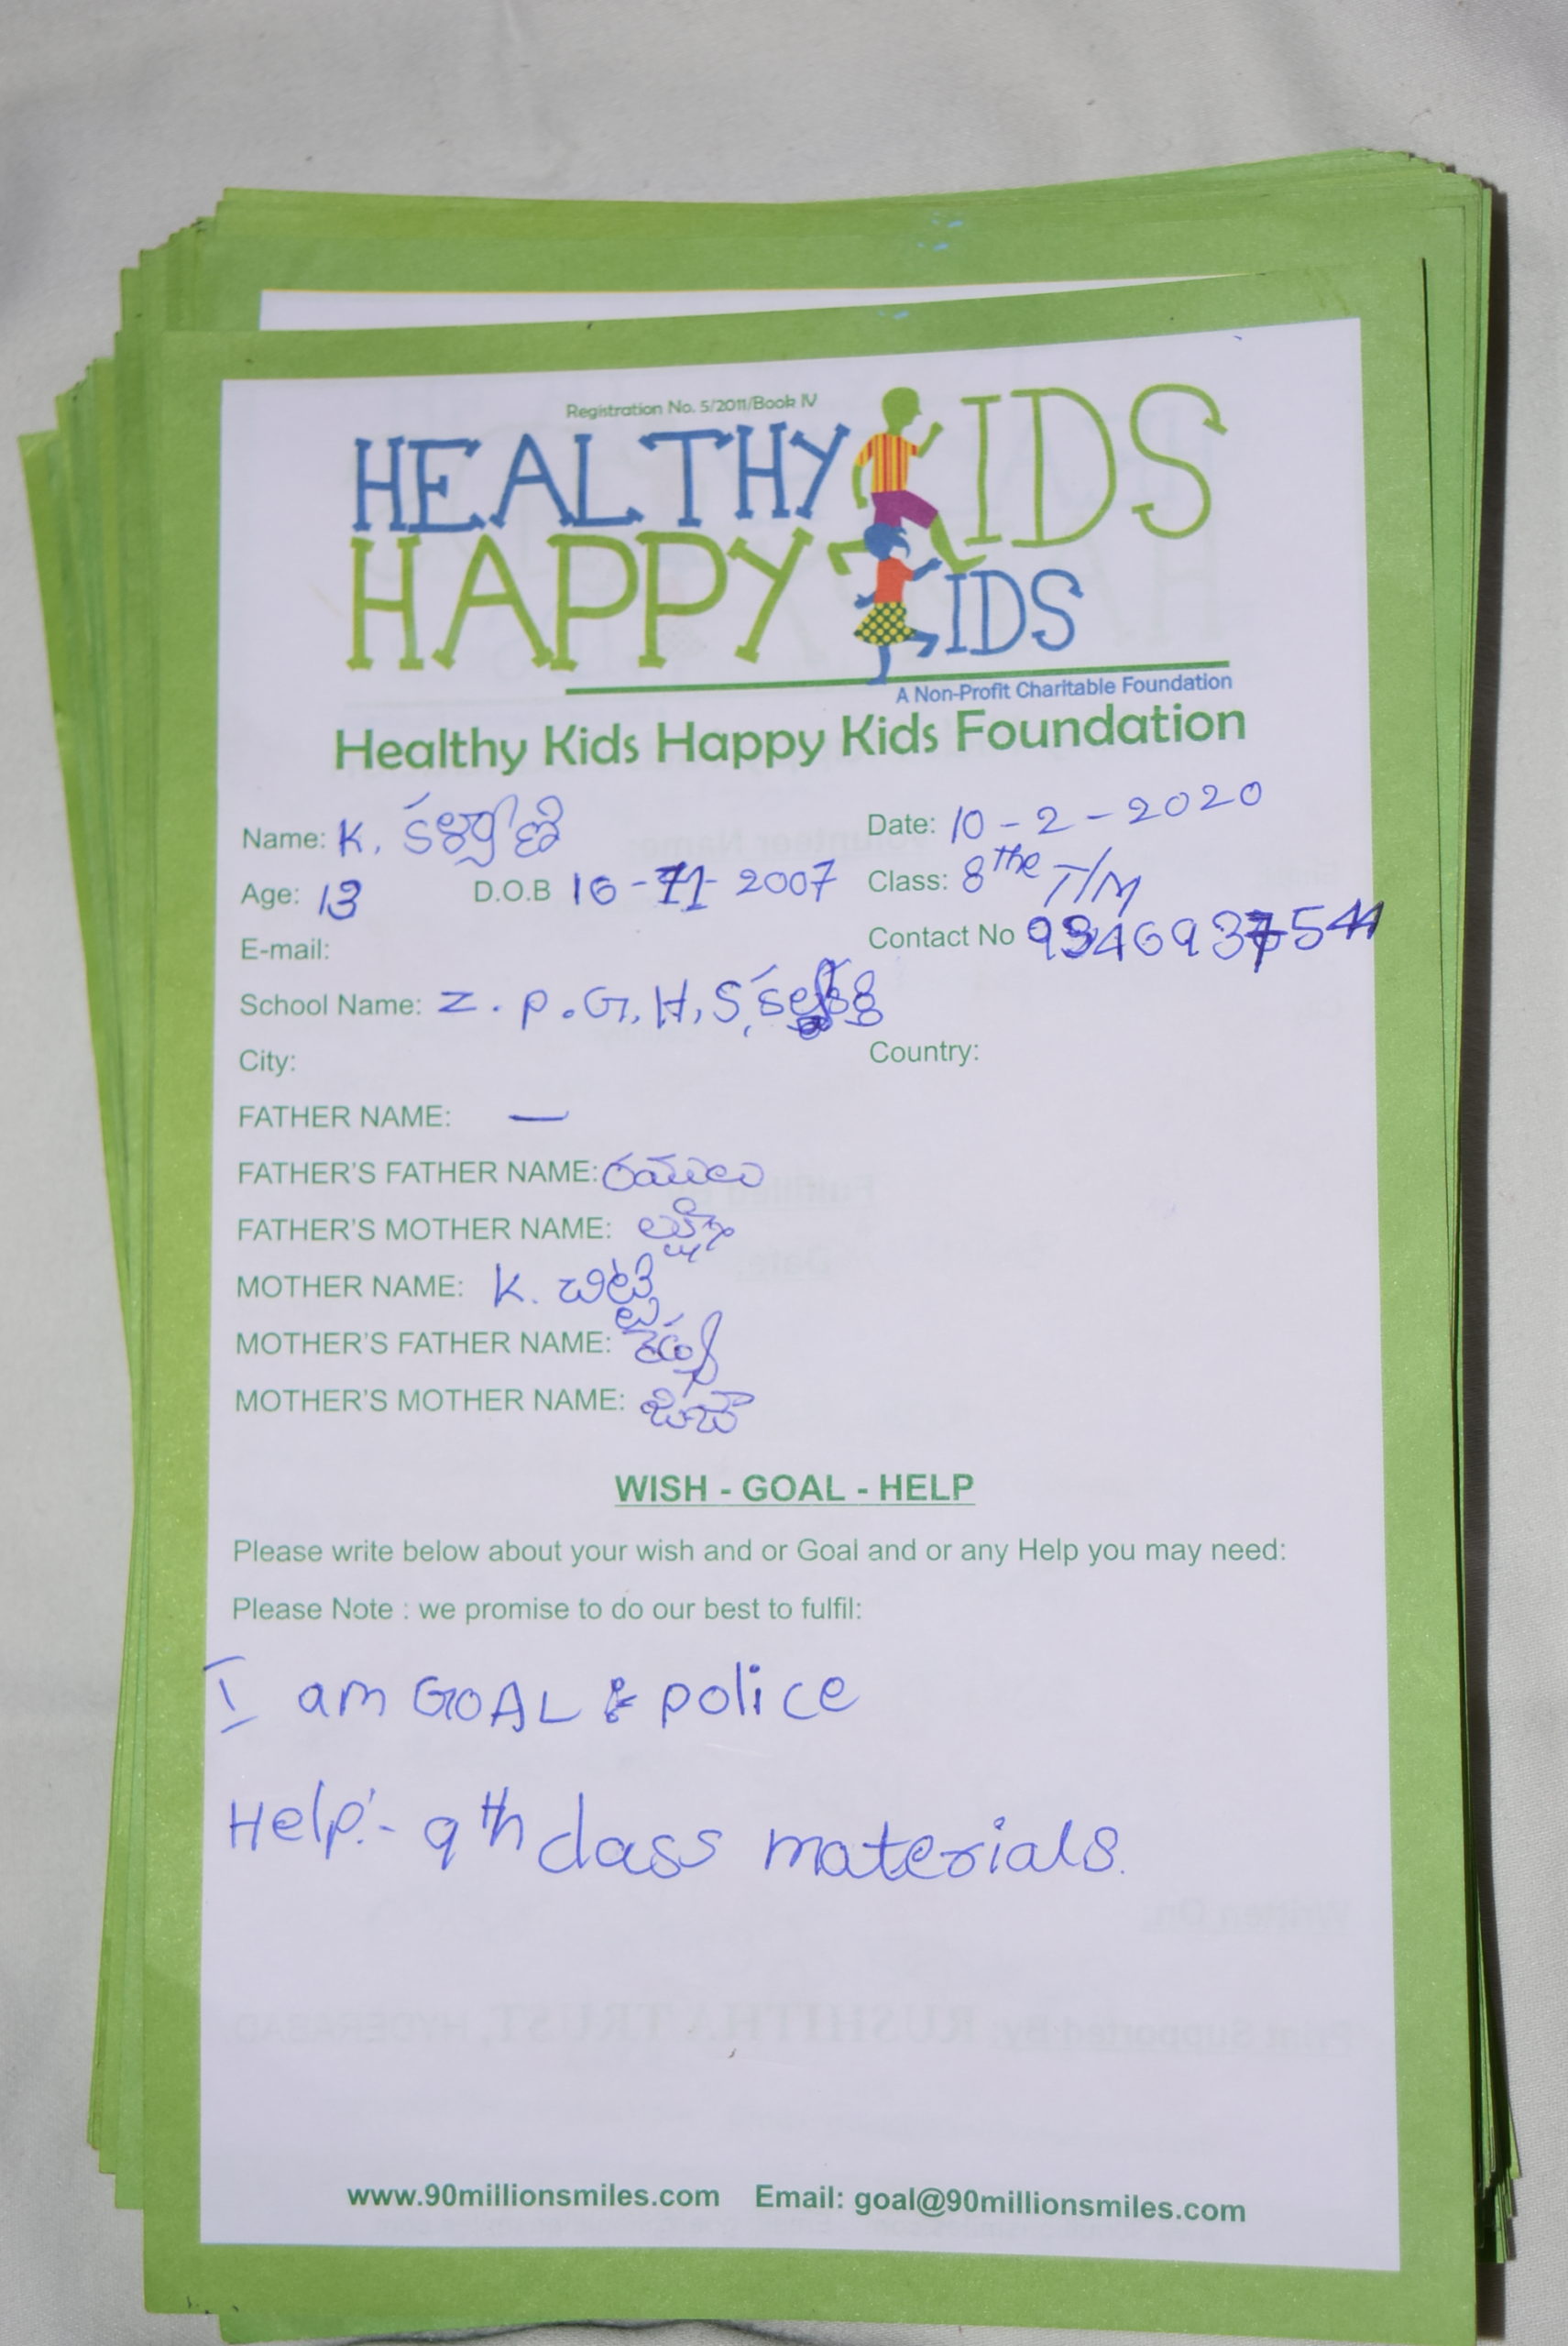 Registration No. 5/2011/Book IV
HEALTHY KIDS
HAPPY KIDS
A Non-Profit Charitable Foundation
Healthy Kids Happy Kids Foundation
Name: K. కళ్యాణి
Date: 10-2-2020
Age: 13 D.O.B 16-11-2007
Class: 8the T/M
E-mail:
Contact No
School Name: Z.P.G.H.S,
City:
Country:
FATHER NAME: —
FATHER'S FATHER NAME: రయులు
FATHER'S MOTHER NAME:
MOTHER NAME: K. చిట్టి
MOTHER'S FATHER NAME:
MOTHER'S MOTHER NAME:
WISH - GOAL - HELP
Please write below about your wish and or Goal and or any Help you may need:
Please Note : we promise to do our best to fulfil:
I am GOAL police
Help:- 9th class materials.
www.90millionsmiles.com Email: goal@90millionsmiles.com